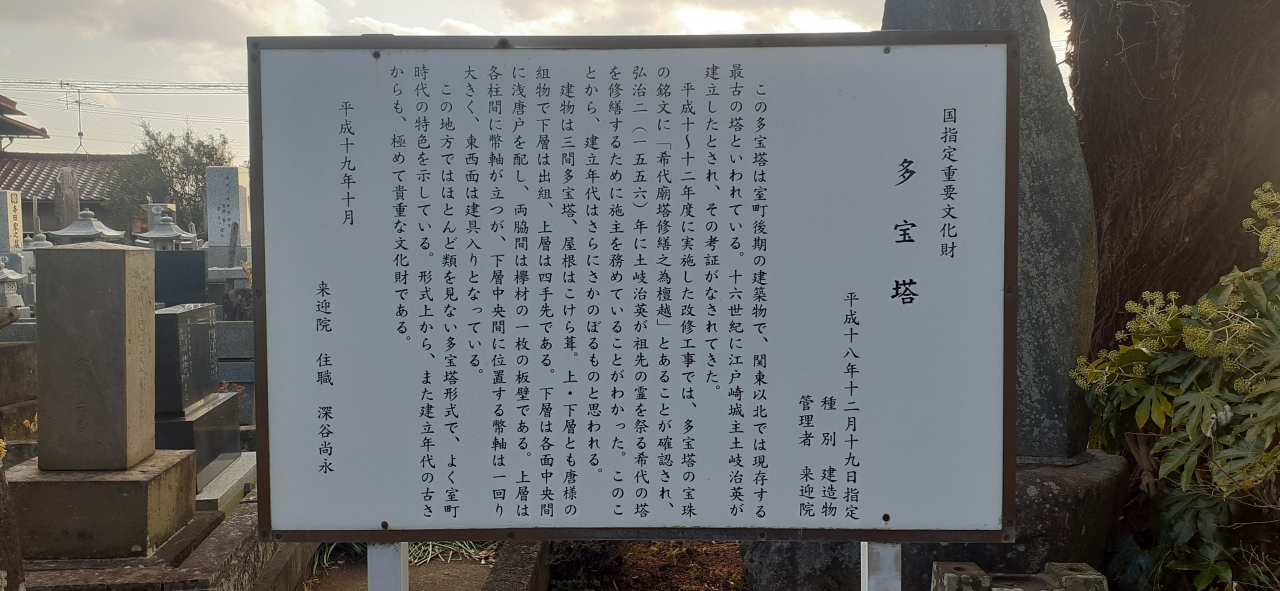 国指定重要文化財
多宝塔
平成十八年十二月十九日指定
種別 建造物
管理者 来迎院
この多宝塔は室町後期の建築物で、関東以北では現存する
最古の塔といわれている。十六世紀に江戸崎城主土岐治英が
建立したとされ、その考証がなされてきた。
平成十〜十二年度に実施した改修工事では、多宝塔の宝珠
の銘文に「希代廟塔修繕之為檀越」とあることが確認され、
弘治二(一五五六)年に土岐治英が祖先の霊を祭る希代の塔
を修繕するために施主を務めていることがわかった。このこ
とから、建立年代はさらにさかのぼるものと思われる。
建物は三間多宝塔、屋根はこけら葺。上・下層とも唐様の
組物で下層は出組、上層は四手先である。下層は各面中央間
に浅唐戸を配し、両脇間は欅材の一枚の板壁である。上層は
各柱間に幣軸が立つが、下層中央間に位置する幣軸は一回り
大きく、東西面は建具入りとなっている。
この地方ではほとんど類を見ない多宝塔形式で、よく室町
時代の特色を示している。形式上から、また建立年代の古さ
からも、極めて貴重な文化財である。
平成十九年十月
来迎院 住職 深谷尚永